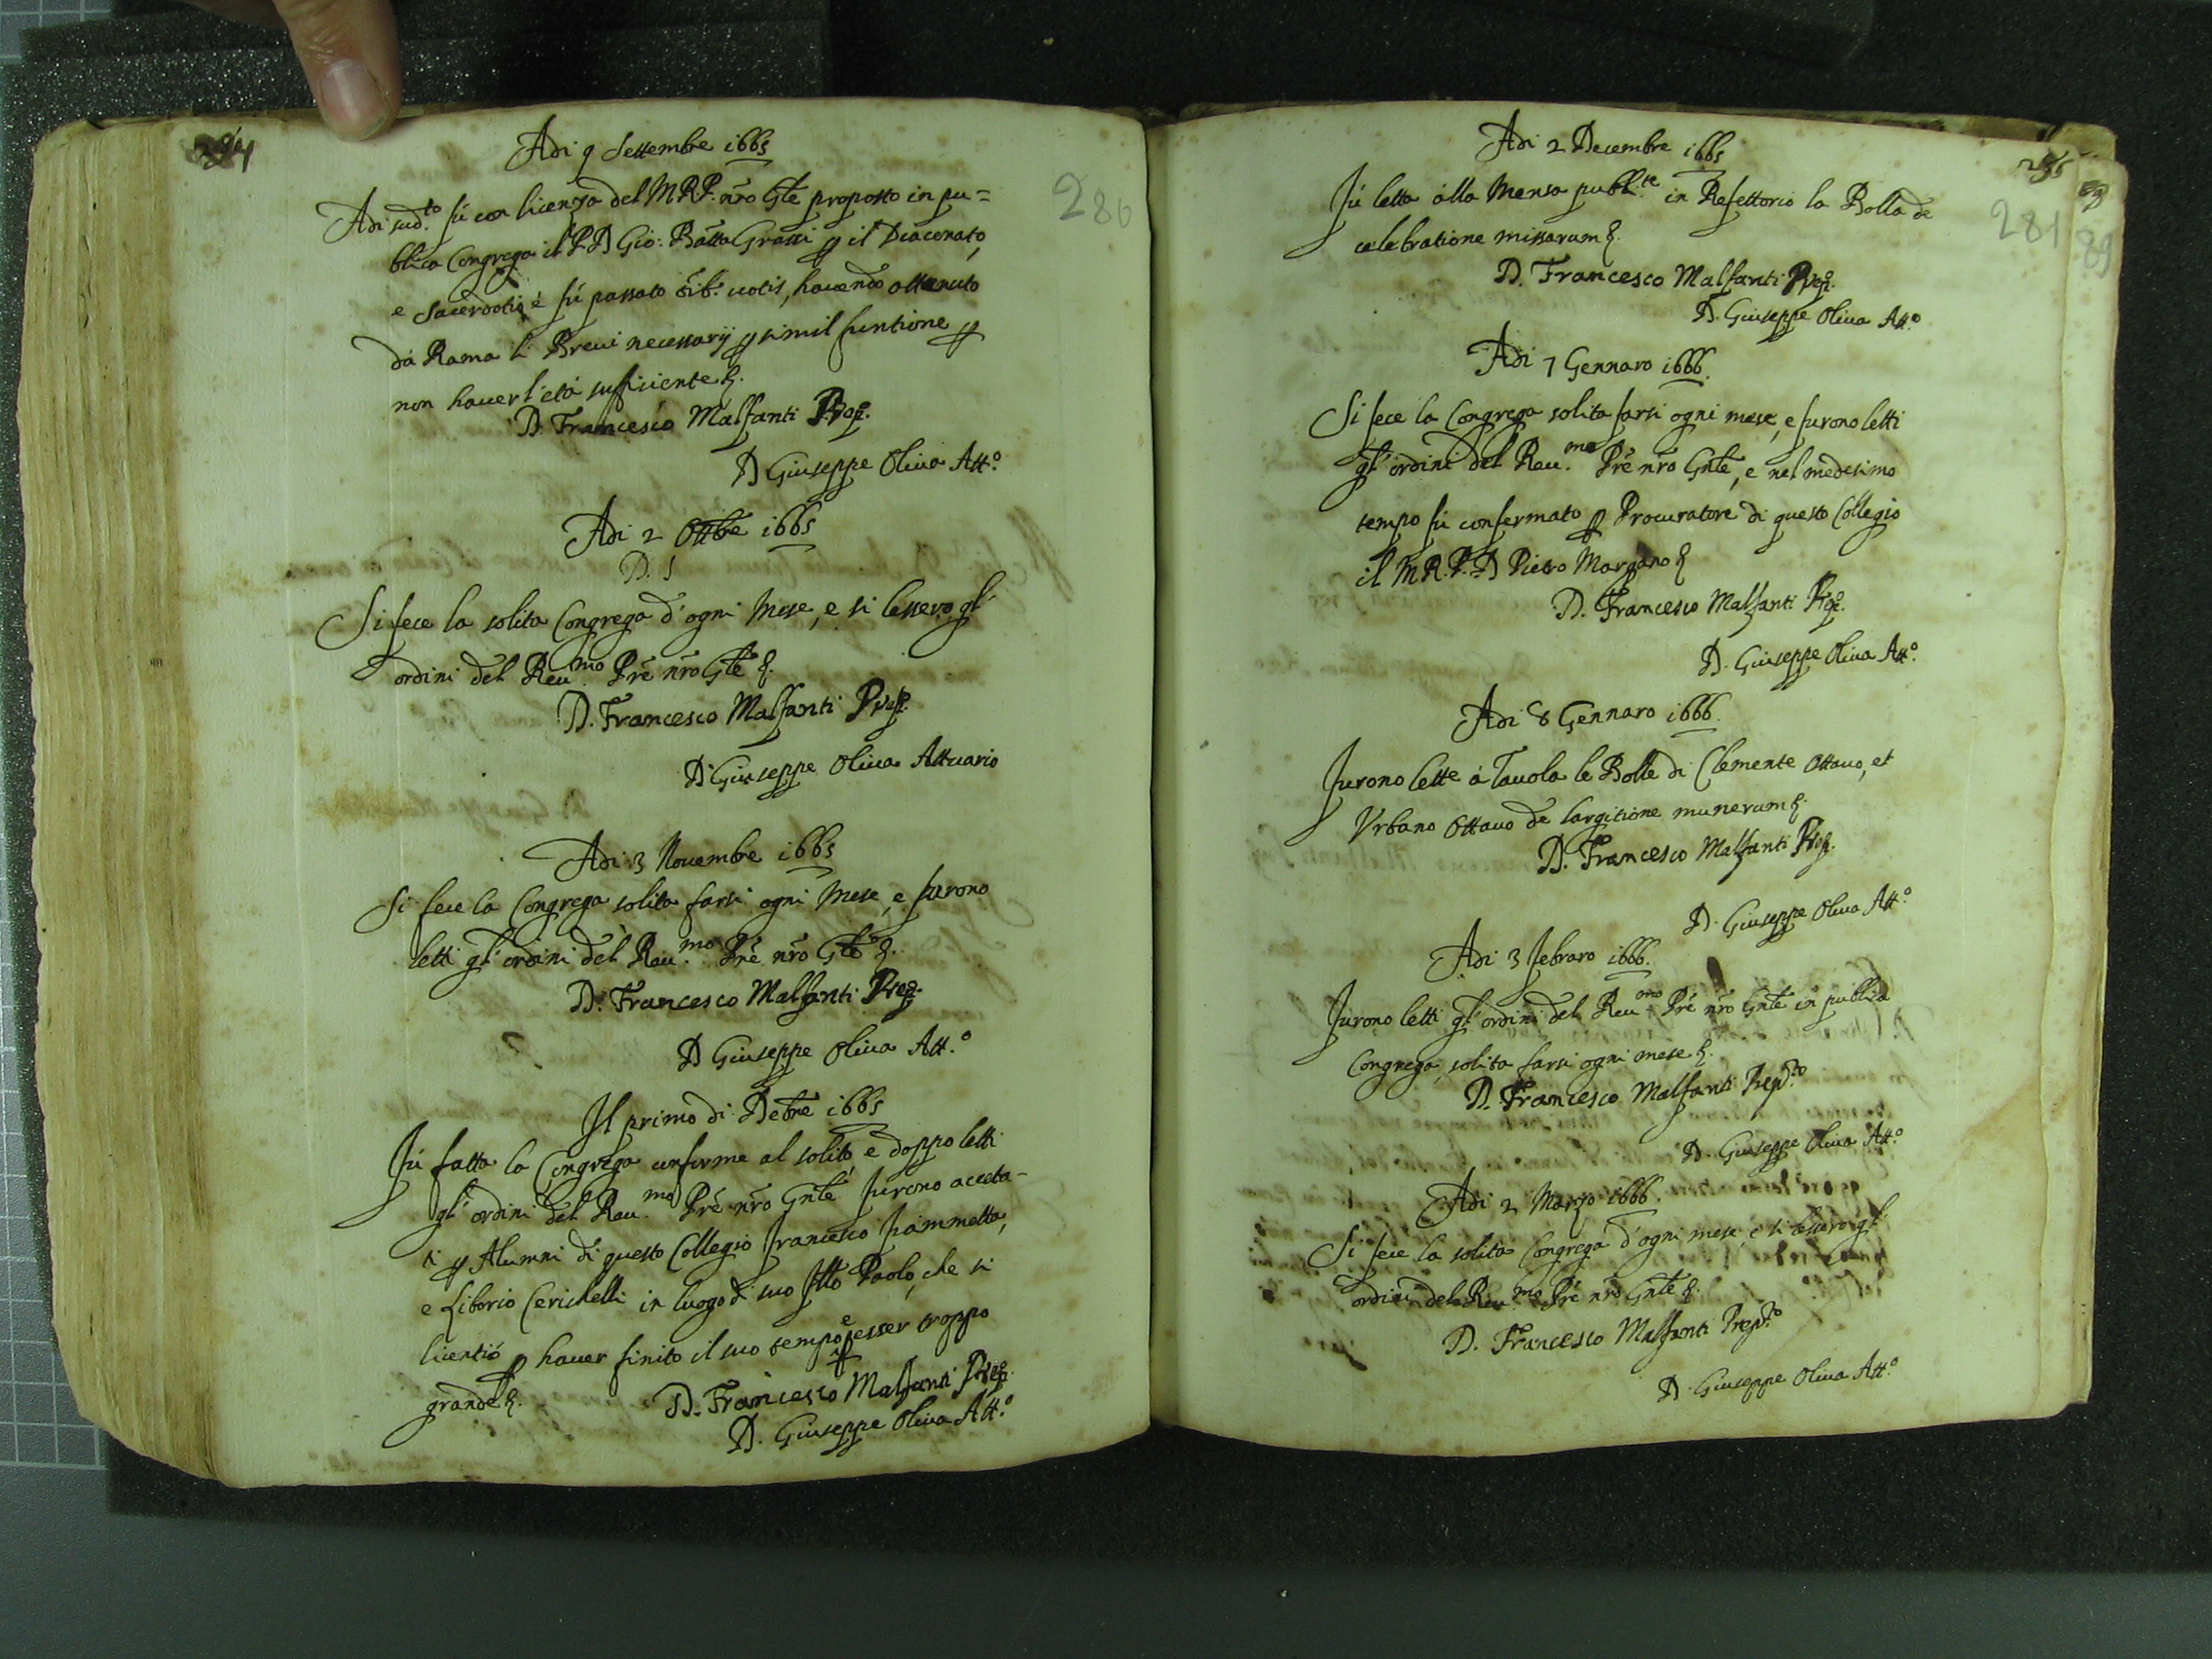 284
280
Adi 9 Settembre 1665
Adi sud.to fù con licenza del M.R.P. nr̃o Gñle proposto in pu=
blica Congrega il P. D. Gio: Batta Grassi ꝑ il Diaconato,
e Sacerdotio, è fù passato õib.s uotis, hauendo ottenuto
dà Roma li Breui necessarij ꝑ simil funtione ꝑ
non hauer l'età sufficiente &.
D. Francesco Malfanti Prep.o
D Giuseppe Oliua Att.o
Adi 2 Ottbre 1665
Si fece la solita Congrega d'ogni Mese, e si lessero gl'
ordini del Reu.mo Prẽ nr̃o Gñle &.
D. Francesco Malfanti Prep.o
D Giuseppe Oliua Attuario
Adi 3 Nouembre 1665
Si fece la Congrega solita farsi ogni Mese, e furono
letti gl'ordini del Reu.mo Prẽ nr̃o Gñle &.
D. Francesco Malfanti Prep.o
D Giuseppe Oliua Att.o
Il primo di Xbre 1665
Fù fatta la Congrega conforme al solito, e doppo letti
gl'ordini del Reu.mo Prẽ nr̃o Gñle furono acceta-
ti ꝑ Alumni di questo Collegio Francesco Fiammetta,
e Liborio Cerichelli in luogo di suo Fllo Paolo, che si
licentiò ꝑ hauer finito il suo tempo e ꝑ esser troppo
grande &.
D. Francesco Malfanti Prep.o
D. Giuseppe Oliua Att.o
285
281
89
Adi 2 Decembre 1665
Fù letta alla Mensa publi.te in Refettorio la Bolla de
celebratione missarum &.
D. Francesco Malfanti Prep.o
D. Giuseppe Oliua Att.o
Adi 7 Gennaro 1666.
Si fece la Congrega solita farsi ogni mese, e furono letti
gl'ordini del Reu.mo Prẽ nr̃o Gñle, e nel medesimo
tempo fù confermato ꝑ Procuratore di questo Collegio
il M.R.P. D Pietro Morgano &
D. Francesco Malfanti Prep.o
D. Giuseppe Oliua Att.o
Adi 8 Gennaro 1666.
Furono lette à Tauola le Bolle di Clemente Ottauo, et
Vrbano Ottauo de largitione munerum &.
D. Francesco Malfanti Prep.o
D. Giuseppe Oliua Att.o
Adi 3 Febraro 1666.
Furono letti gl'ordini del Reu.mo Prẽ nr̃o Gñle in publica
Congrega, solita farsi ogni mese &.
D. Francesco Malfanti Prep.to
D. Giuseppe Oliua Att.o
Adi 2 Marzo 1666.
Si fece la solita Congrega d'ogni mese, e si lessero gl'
ordini del Reu.mo Prẽ nr̃o Gñle &.
D. Francesco Malfanti Prep.to
D. Giuseppe Oliua Att.o